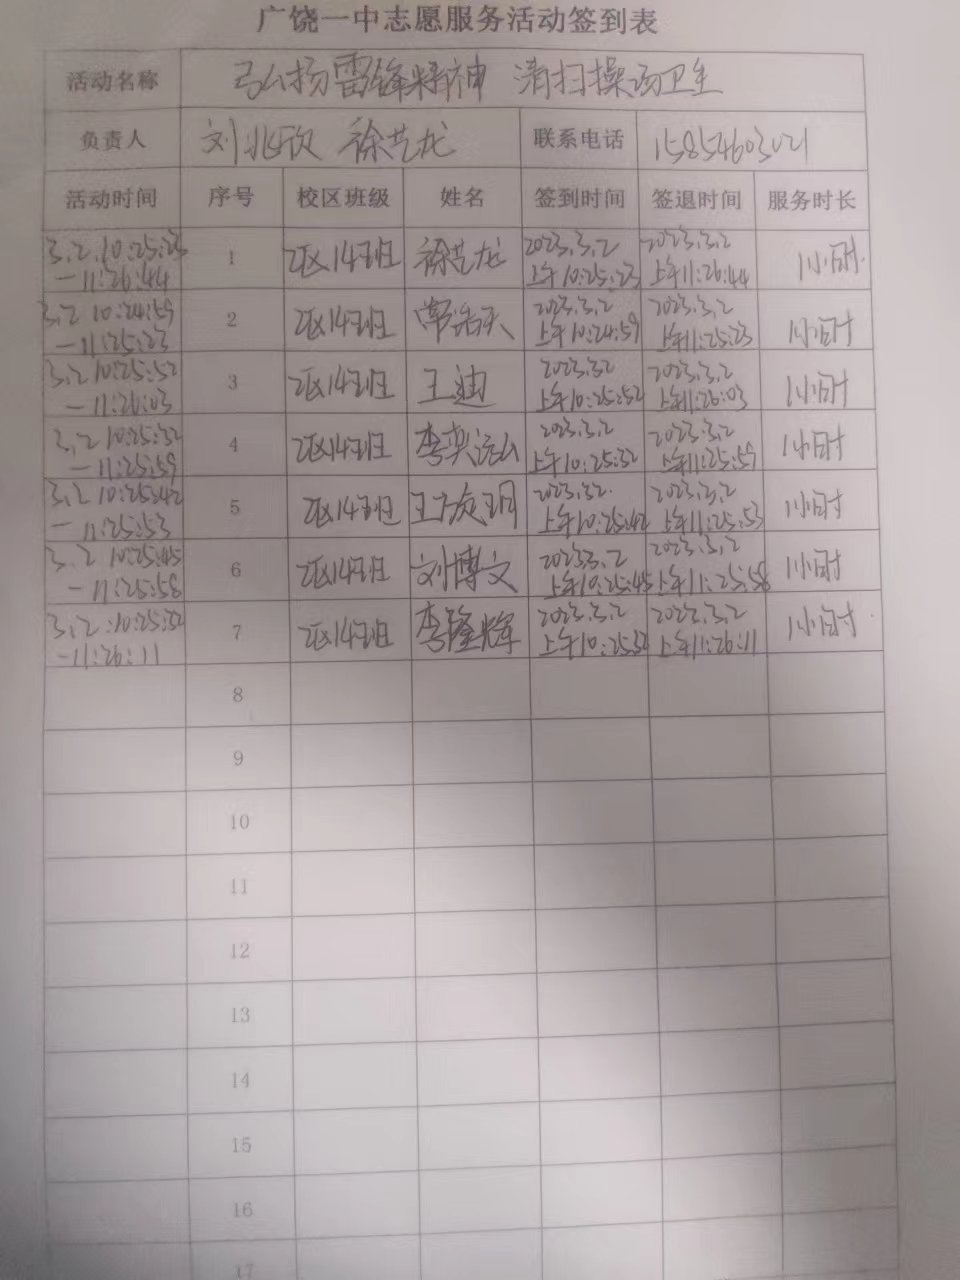 广饶一中志愿服务活动签到表
活动名称 弘扬雷锋精神 清扫操场卫生
负责人 刘兆欣 徐艺龙 联系电话
活动时间 序号 校区班级 姓名 签到时间 签退时间 服务时长
3.2.10:25:23 2023.3.2 2023.3.2
—11:26:44 1 2区14班 徐艺龙 上午10:25:23 上午11:26:44 1小时
3.2 10:24:59 2023.3.2 2023.3.2
—11:25:23 2 2区14班 常浩天 上午10:24:59 上午11:25:23 1小时
3.2 10:25:52 2023.3.2 2023.3.2
—11:26:03 3 2区14班 王迪 上午10:25:52 上午11:26:03 1小时
3.2 10:25:32 2023.3.2 2023.3.2
—11:25:59 4 2区14班 上午10:25:32 上午11:25:59 1小时
3.2 10:25:42 2023.3.2 2023.3.2
—11:25:53 5 2区14班 上午10:25:42 上午11:25:53 1小时
3.2 10:25:45 2023.3.2 2023.3.2
—11:25:58 6 2区14班 刘博文 上午10:25:45 上午11:25:58 1小时
3.2:10:25:32 2023.3.2 2023.3.2
—11:26:11 7 2区14班 李隆辉 上午10:25:32 上午11:26:11 1小时
8
9
10
11
12
13
14
15
16
17